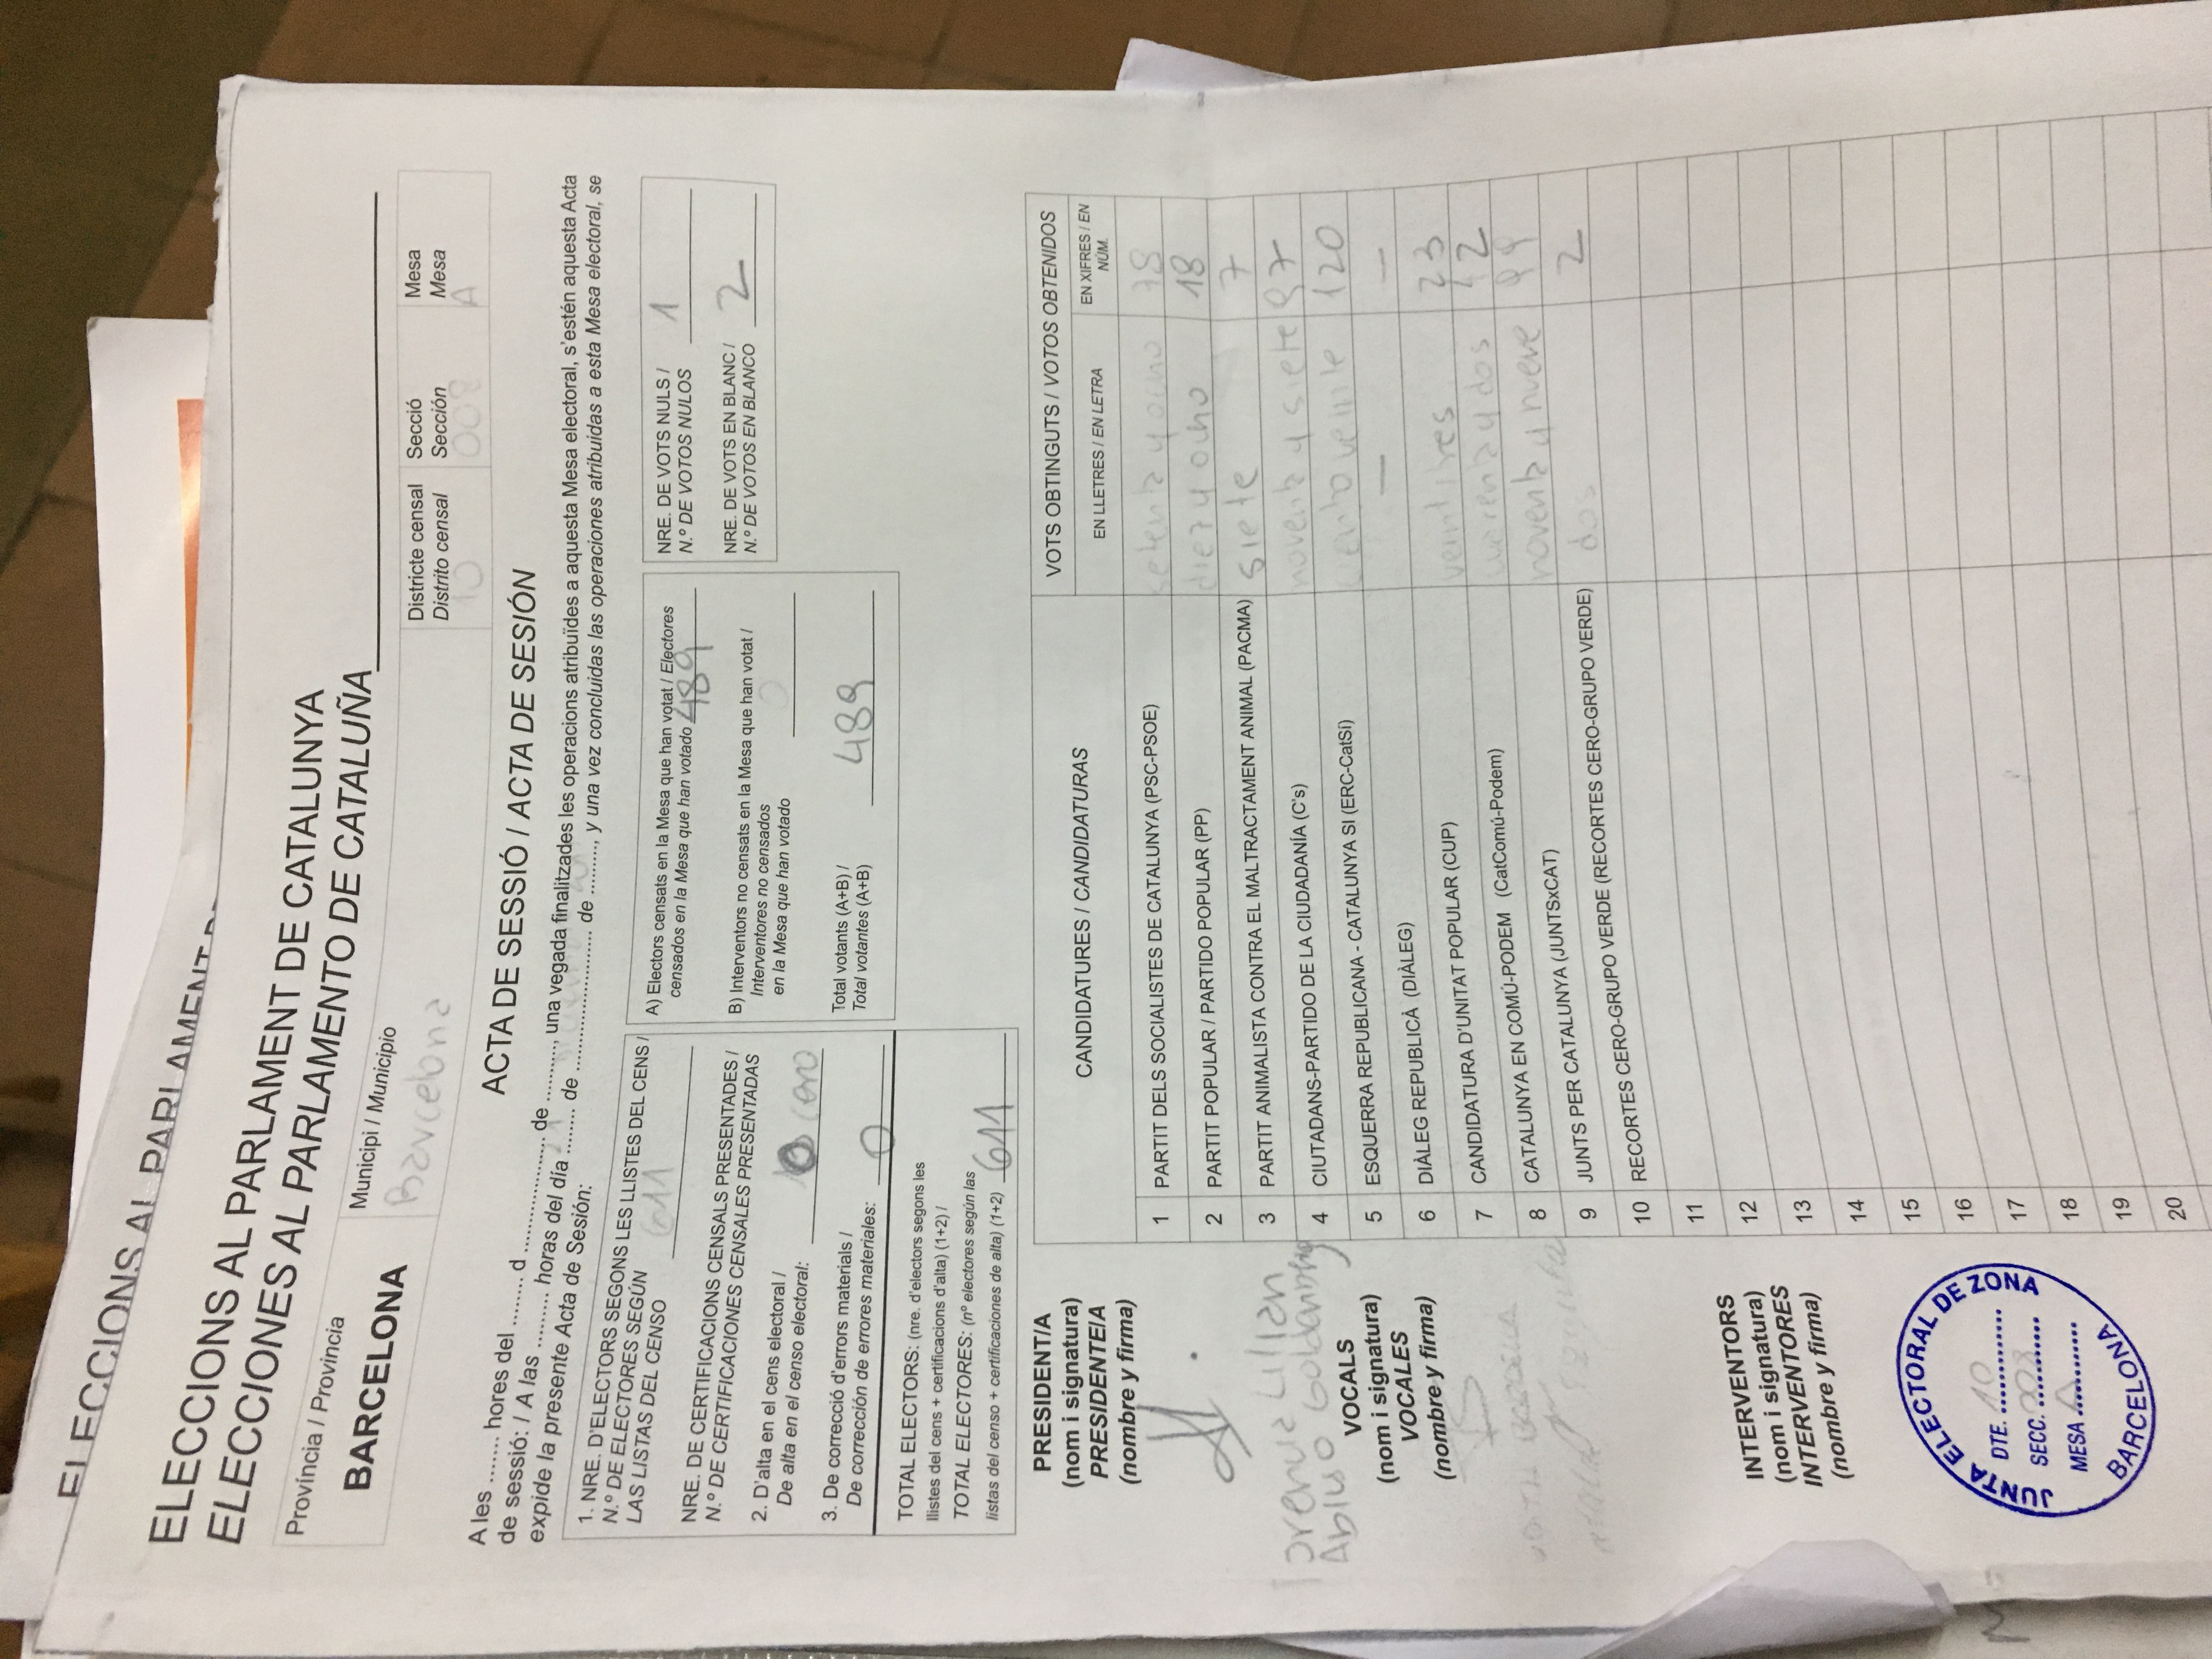 ELECCIONS AL PARLAMENT DE
ELECCIONS AL PARLAMENT DE CATALUNYA
ELECCIONES AL PARLAMENTO DE CATALUÑA
Província / Provincia
BARCELONA
Municipi / Municipio
Barcelona
Districte censal
Distrito censal
10
Secció
Sección
008
Mesa
Mesa
A
ACTA DE SESSIÓ / ACTA DE SESIÓN
A les ....... hores del ........ d .................. de .........., una vegada finalitzades les operacions atribuïdes a aquesta Mesa electoral, s'estén aquesta Acta
de sessió: / A las ......... horas del día 21 de ...................... de ........., y una vez concluidas las operaciones atribuidas a esta Mesa electoral, se
expide la presente Acta de Sesión:
1. NRE. D'ELECTORS SEGONS LES LLISTES DEL CENS /
N.º DE ELECTORES SEGÚN
LAS LISTAS DEL CENSO 611
NRE. DE CERTIFICACIONS CENSALS PRESENTADES /
N.º DE CERTIFICACIONES CENSALES PRESENTADAS
2. D'alta en el cens electoral /
De alta en el censo electoral: 0 cero
3. De correcció d'errors materials /
De corrección de errores materiales: 0
TOTAL ELECTORS: (nre. d'electors segons les
llistes del cens + certificacions d'alta) (1+2) /
TOTAL ELECTORES: (nº electores según las
listas del censo + certificaciones de alta) (1+2) 611
A) Electors censats en la Mesa que han votat / Electores
censados en la Mesa que han votado 489
B) Interventors no censats en la Mesa que han votat /
Interventores no censados
en la Mesa que han votado 0
Total votants (A+B) /
Total votantes (A+B) 489
NRE. DE VOTS NULS / 1
N.º DE VOTOS NULOS
NRE. DE VOTS EN BLANC / 2
N.º DE VOTOS EN BLANCO
PRESIDENT/A
(nom i signatura)
PRESIDENTE/A
(nombre y firma)
Lilian
VOCALS
(nom i signatura)
VOCALES
(nombre y firma)
INTERVENTORS
(nom i signatura)
INTERVENTORES
(nombre y firma)
JUNTA ELECTORAL DE ZONA
DTE. 10
SECC. 008
MESA A
BARCELONA
CANDIDATURES / CANDIDATURAS
VOTS OBTINGUTS / VOTOS OBTENIDOS
EN LLETRES / EN LETRA
EN XIFRES / EN
NÚM.
1 PARTIT DELS SOCIALISTES DE CATALUNYA (PSC-PSOE) setenta y ocho 78
2 PARTIT POPULAR / PARTIDO POPULAR (PP) diez y ocho 18
3 PARTIT ANIMALISTA CONTRA EL MALTRACTAMENT ANIMAL (PACMA) siete 7
4 CIUTADANS-PARTIDO DE LA CIUDADANÍA (C's) noventa y siete 97
5 ESQUERRA REPUBLICANA - CATALUNYA SI (ERC-CatSí) ciento veinte 120
6 DIÀLEG REPUBLICÀ (DIÀLEG) — —
7 CANDIDATURA D'UNITAT POPULAR (CUP) veintitres 23
8 CATALUNYA EN COMÚ-PODEM (CatComú-Podem) cuarenta y dos 42
9 JUNTS PER CATALUNYA (JUNTSxCAT) noventa y nueve 99
10 RECORTES CERO-GRUPO VERDE (RECORTES CERO-GRUPO VERDE) dos 2
11
12
13
14
15
16
17
18
19
20